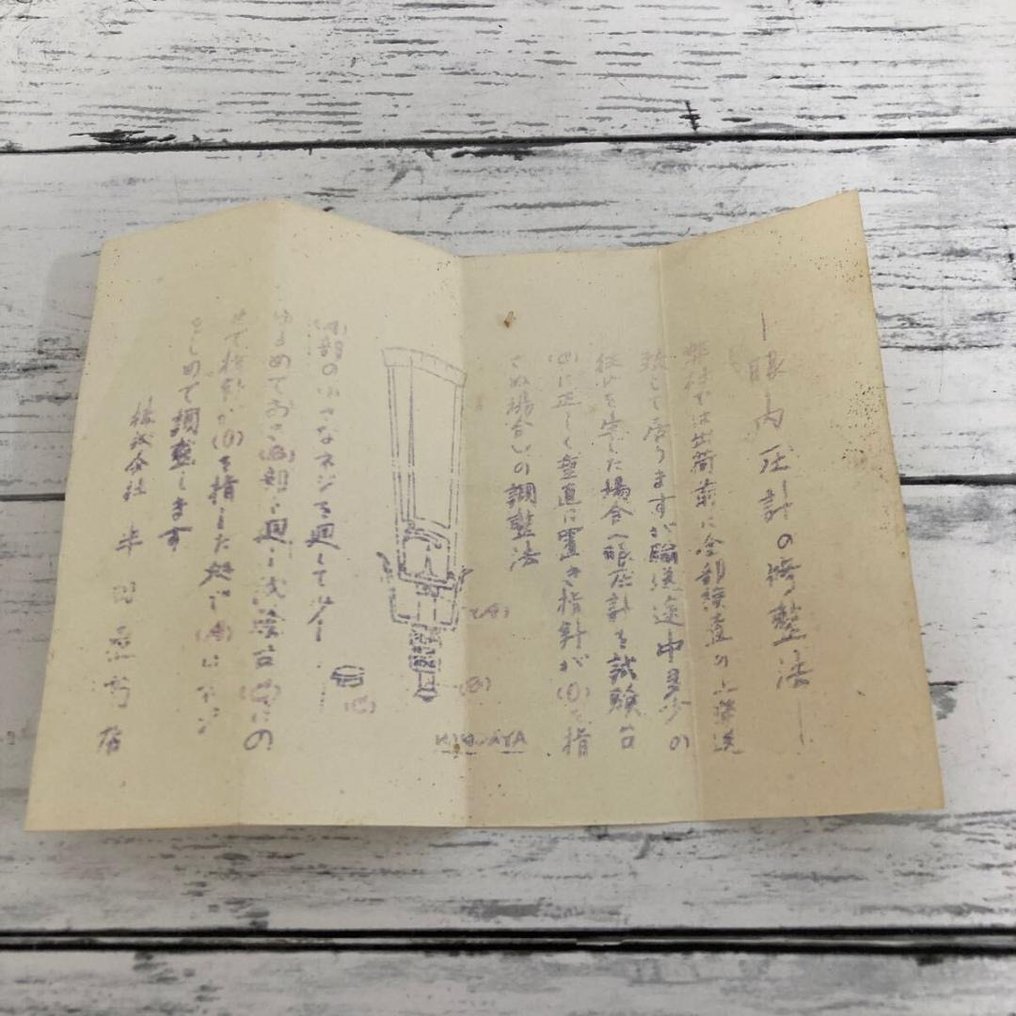 眼内圧計の調整法
弊社では出荷前に全部検査の上発送
致して居りますが輸送途中多少の
狂いを生じた場合(眼圧計を試験台
(C)に正しく垂直に置き指針が(0)を指
さぬ場合)の調整法
(A)
(B)
(C)
(A)部の小さなネジを廻して少し
ゆるめておき(B)部を廻し試験台(C)の
上で指針が(0)を指した処で(A)のネジ
をしめて調整します
株式会社 半田屋商店